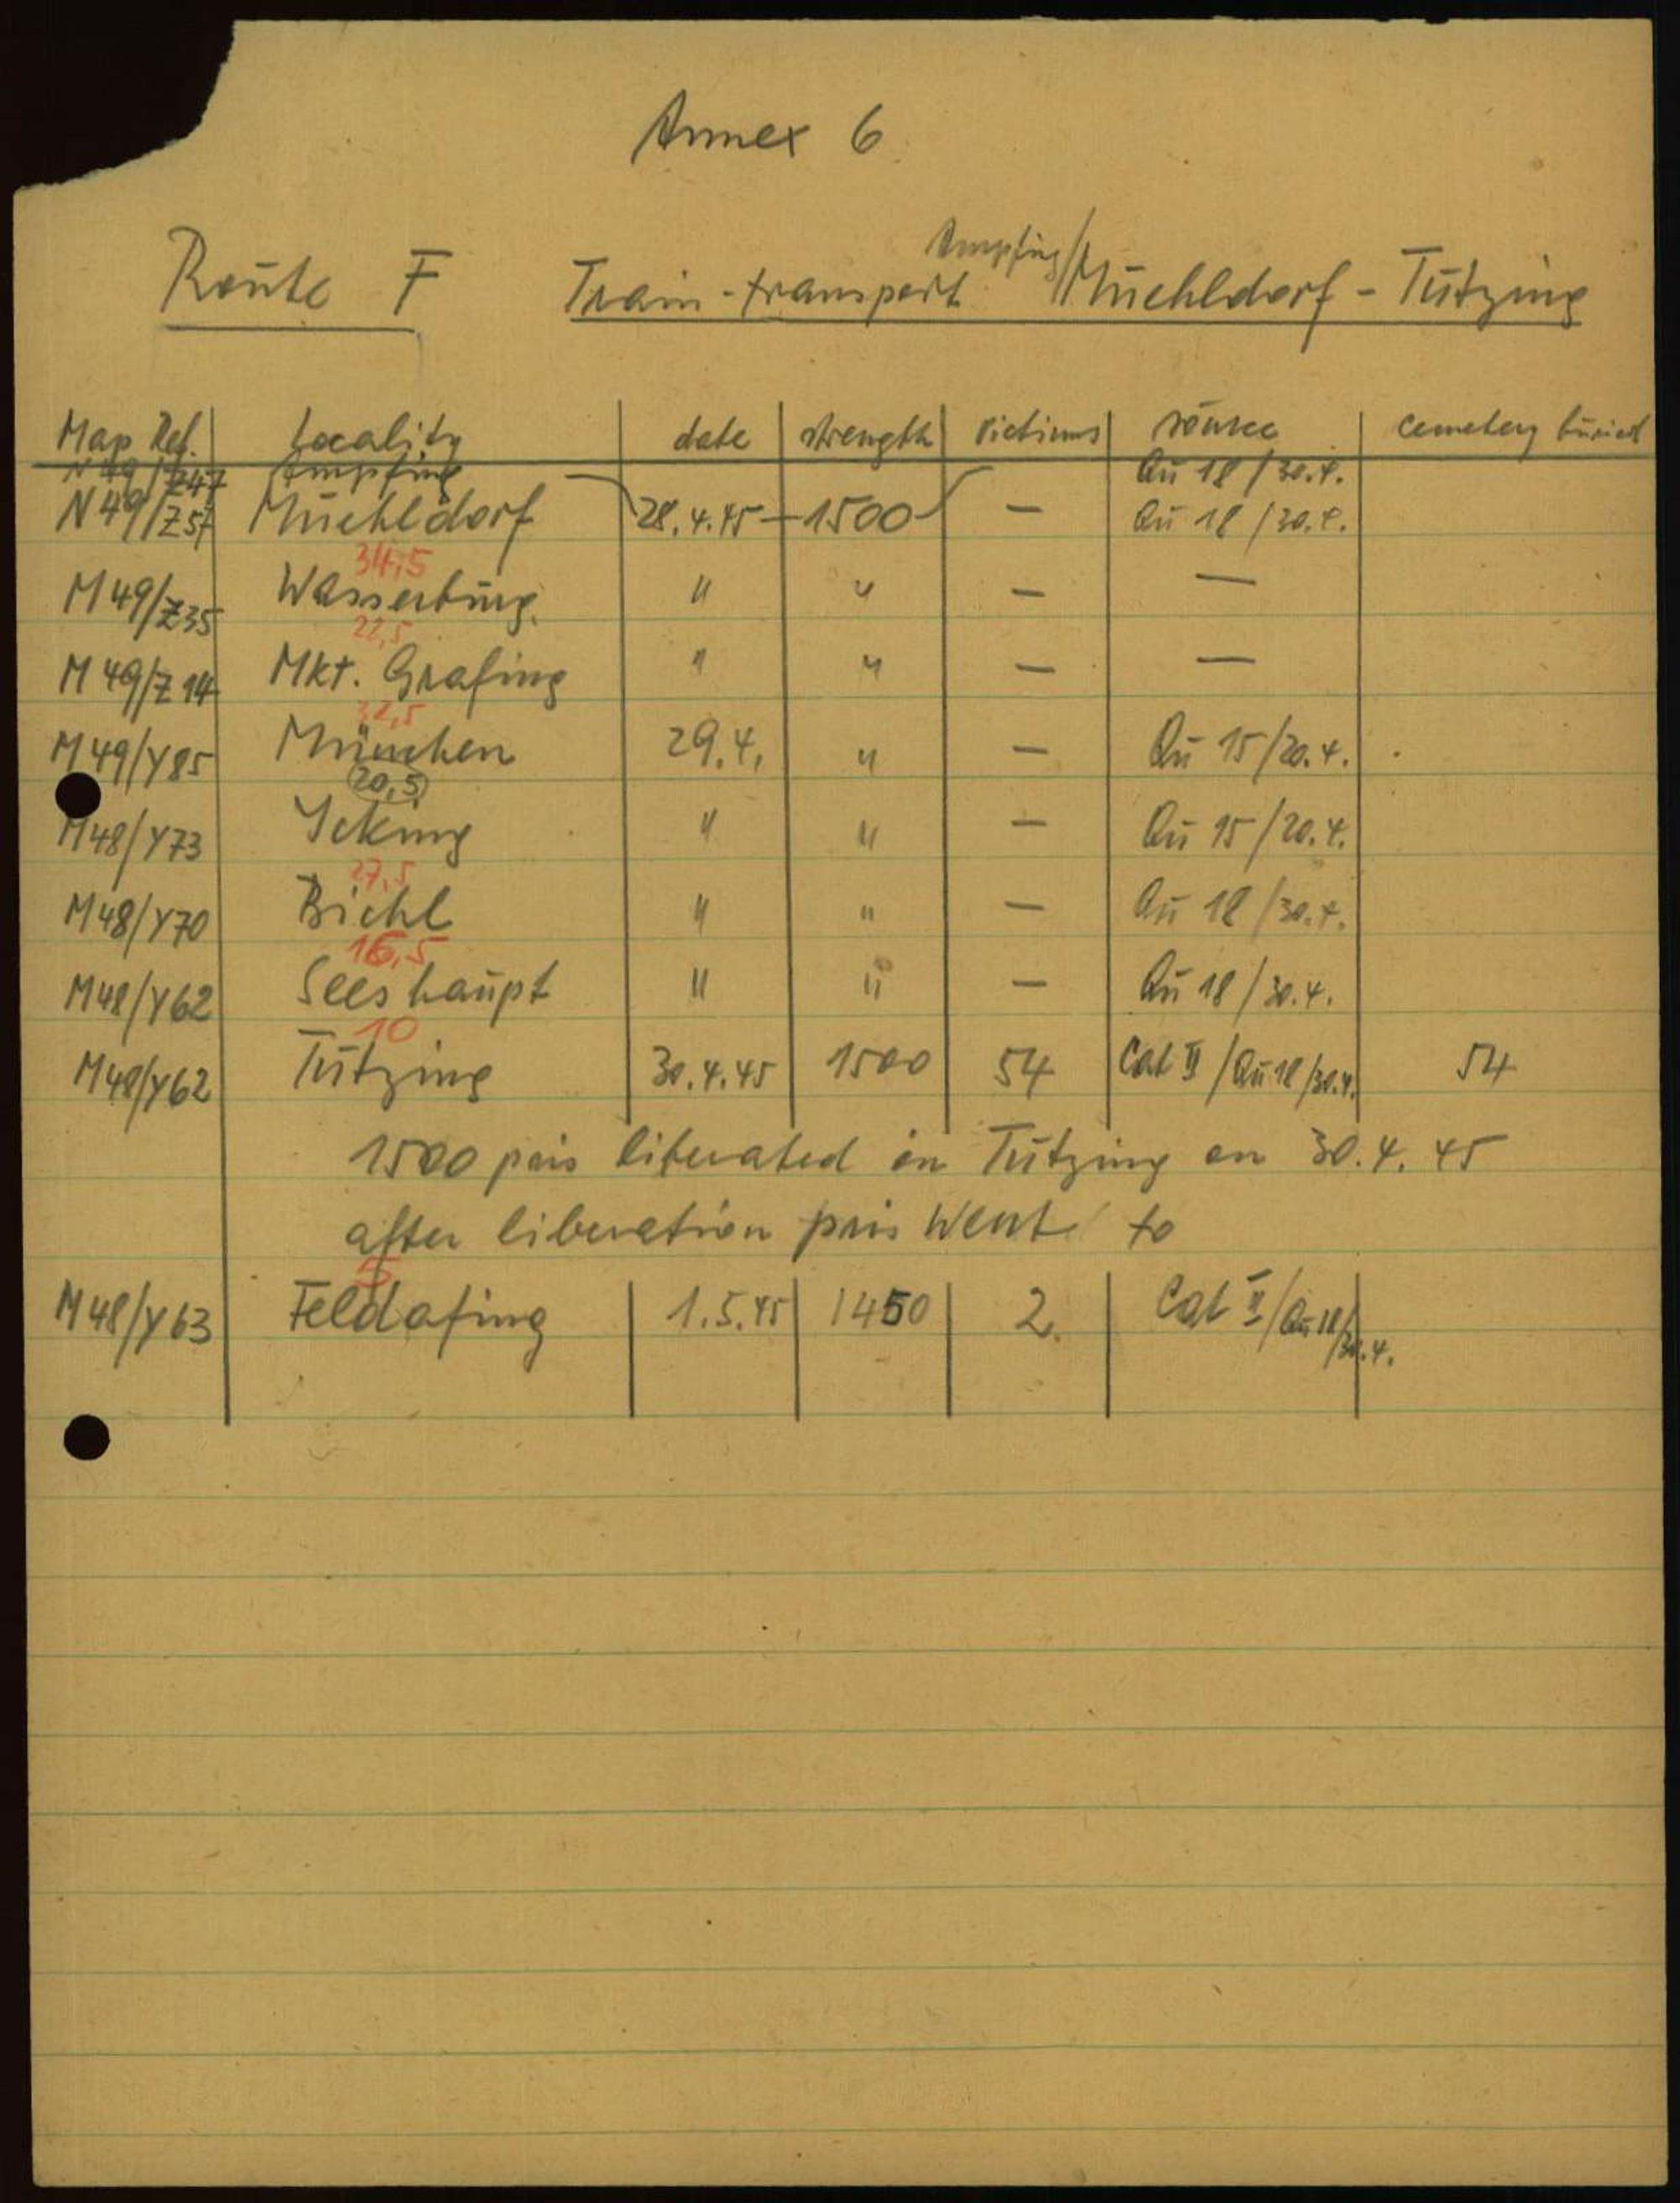 Annex 6
Route F Train-transport Ampfing/Muehldorf - Tutzing
Map Ref. Locality date strength victims source cemetery buried
N 49/Z47 Ampfing Qu 18/30.4.
N 49/Z57 Muehldorf 28.4.45 - 1500 — Qu 18/30.4.
34,5
M 49/Z35 Wasserburg. " " — —
22,5
M 49/Z14 Mkt. Grafing " " — —
32,5
M 49/Y85 München 29.4. " — Qu 15/20.4.
20,5
M48/Y73 Icking " " — Qu 15/20.4.
27,5
M48/Y70 Bichl " " — Qu 18/30.4.
16,5
M48/Y62 Seeshaupt " " — Qu 18/30.4.
10
M48/Y62 Tutzing 30.4.45 1500 54 Cat II/Qu 18/30.4. 54
1500 pris liberated in Tutzing on 30.4.45
after liberation pris went to
5
M48/Y63 Feldafing 1.5.45 1450 2. Cat II/Qu 18/30.4.